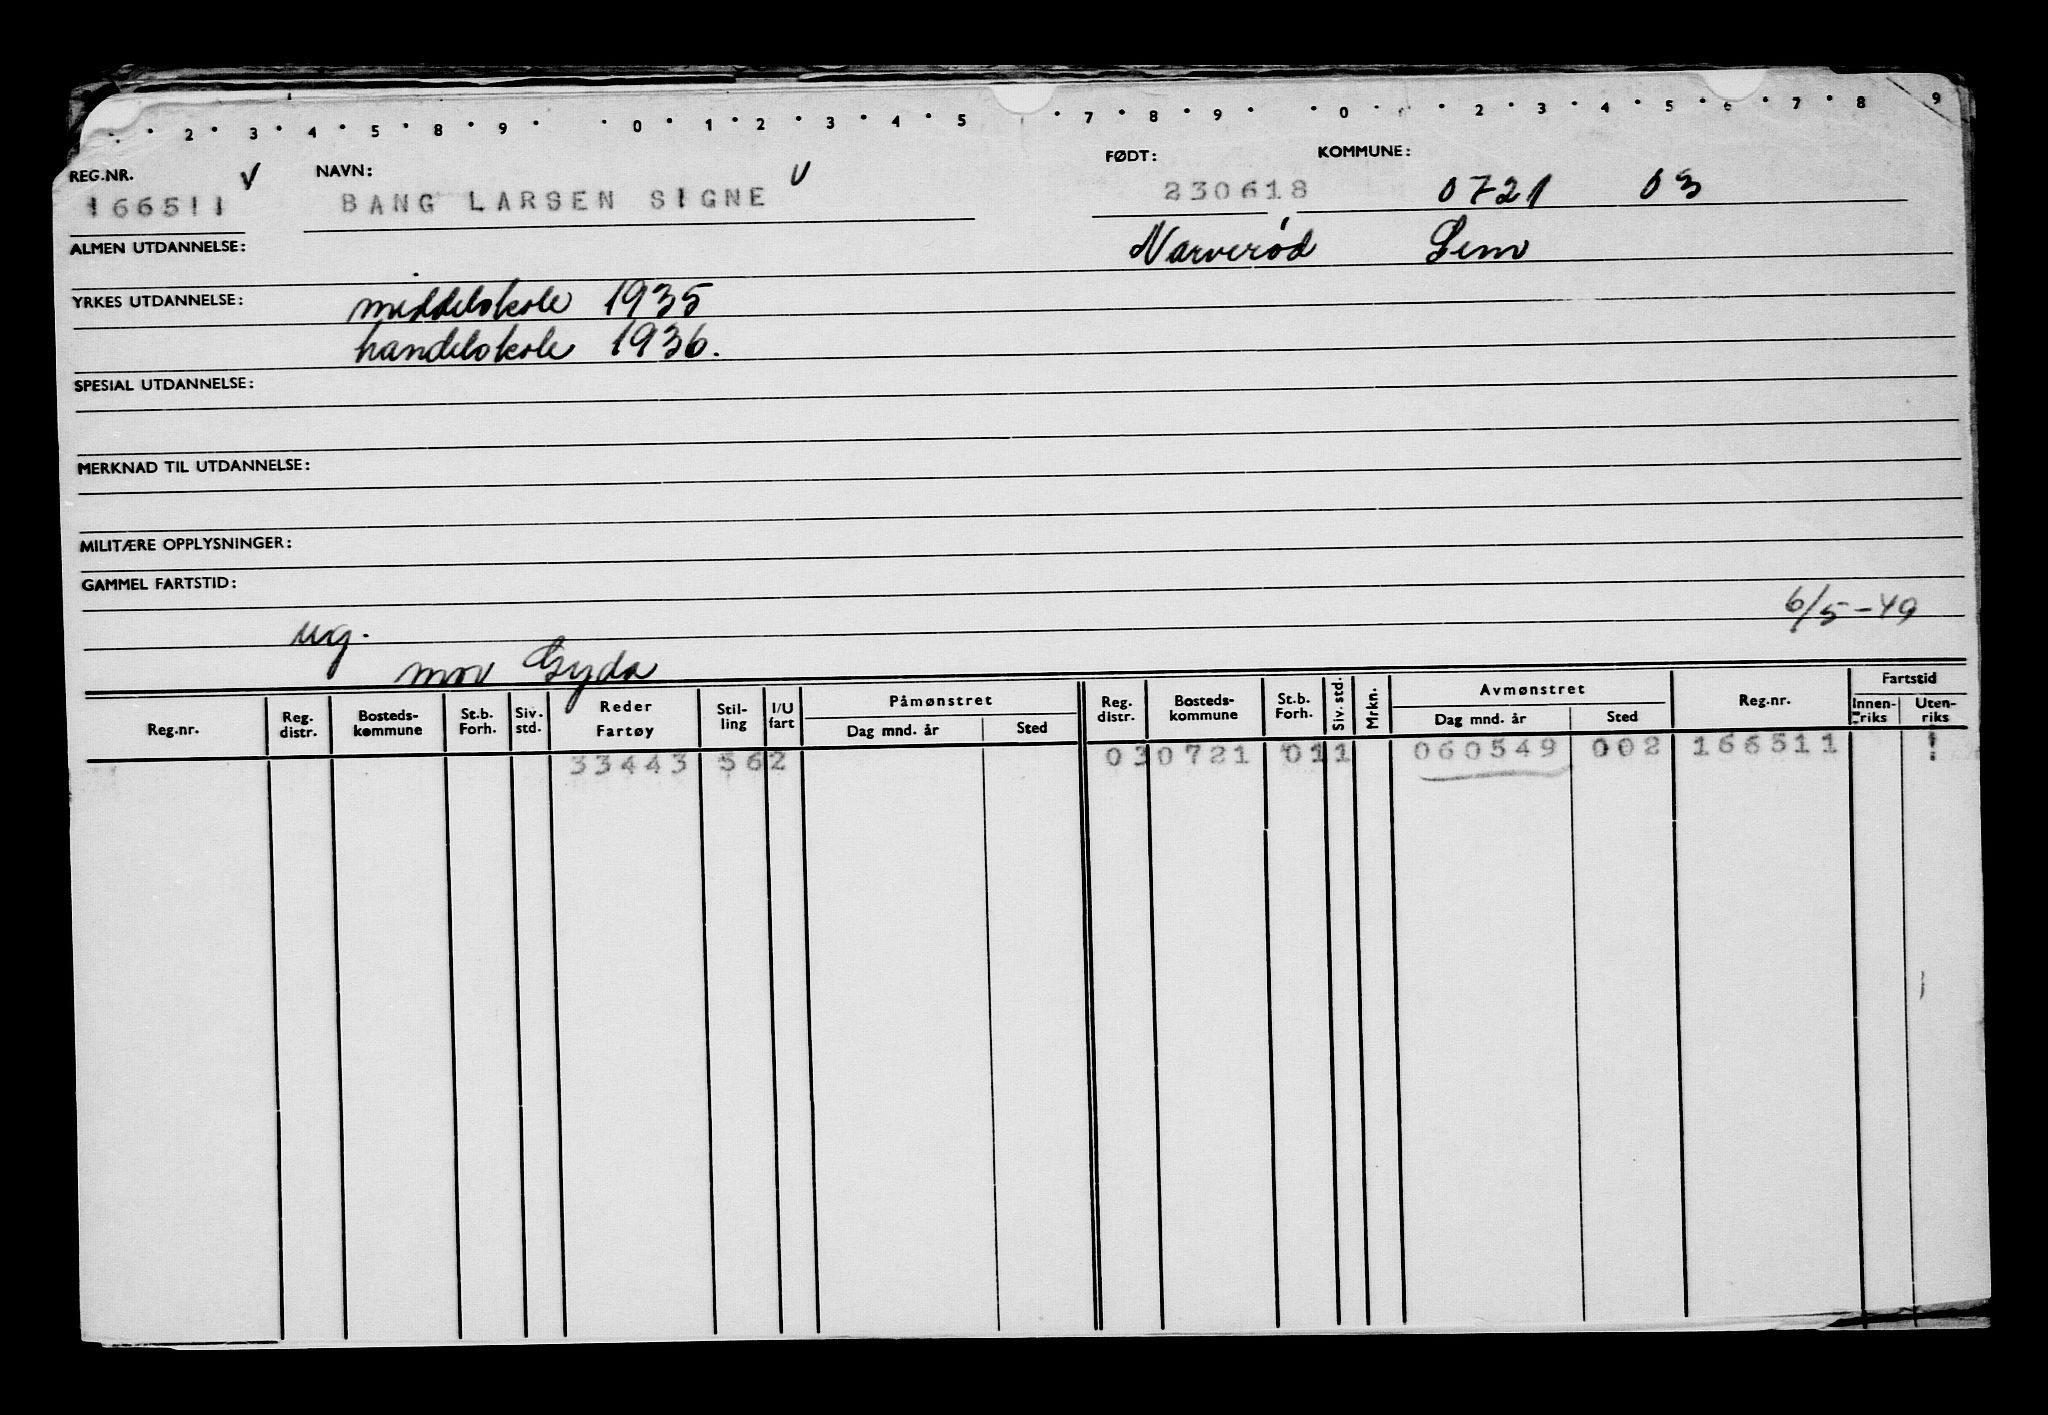 2 3 4 5 8 9 0 1 2 3 4 5 7 8 9 0 2 3 4 5 6 7 8 9
REG.NR. NAVN: FØDT: KOMMUNE:
166511 BANG LARSEN SIGNE 230618 0721 03
ALMEN UTDANNELSE: Narverød Sem
YRKES UTDANNELSE: middelskole 1935
handelskole 1936.
SPESIAL UTDANNELSE:
MERKNAD TIL UTDANNELSE:
MILITÆRE OPPLYSNINGER:
GAMMEL FARTSTID:
6/5-49
ug.
mor Gyda
Reg.nr. Reg. distr. Bosteds-kommune St.b. Forh. Siv. std. Reder Fartøy Stil-ling I/U fart Påmønstret Dag mnd. år Sted Reg. distr. Bosteds-kommune St.b. Forh. Siv. std. Mrkn. Avmønstret Dag mnd. år Sted Reg.nr. Fartstid Innen-riks Uten-riks
33443 562 030721 011 060549 002 166511